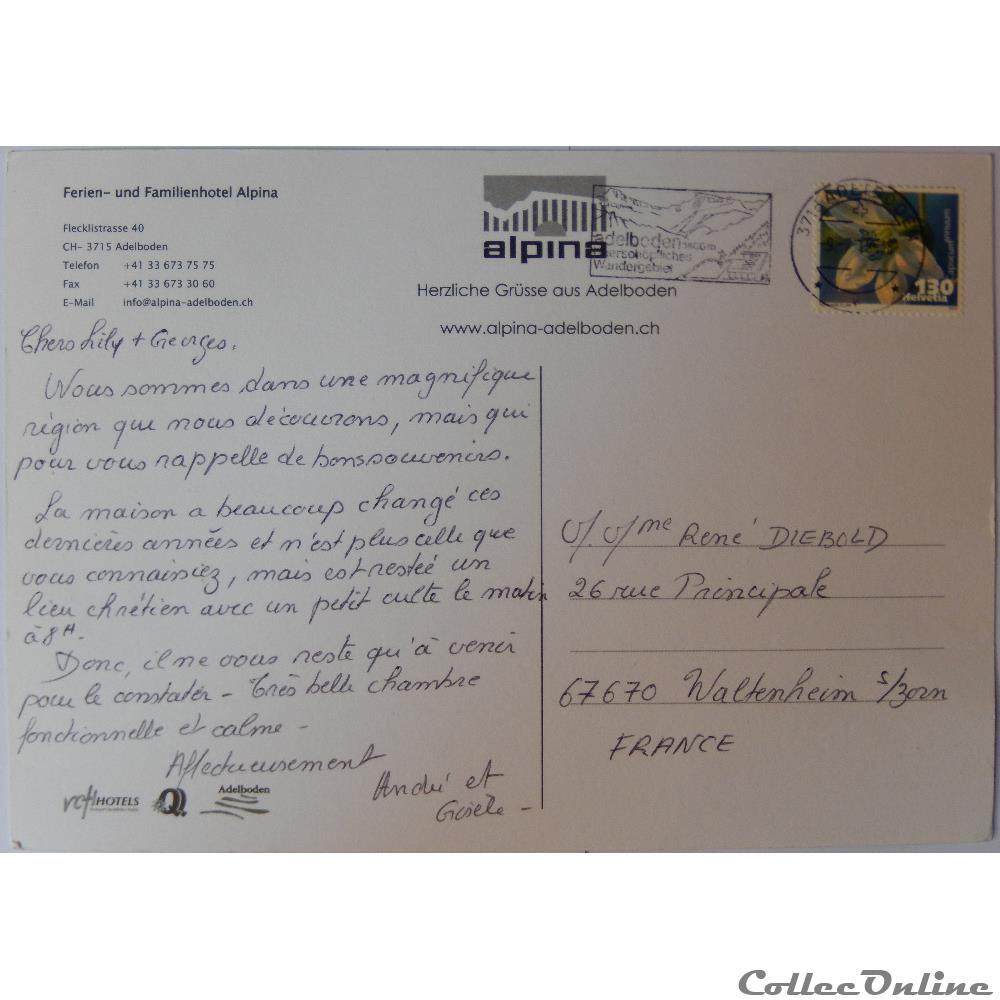 Ferien- und Familienhotel Alpina
Flecklistrasse 40
CH- 3715 Adelboden
Telefon +41 33 673 75 75
Fax +41 33 673 30 60
E-Mail info@alpina-adelboden.ch
alpina
Herzliche Grüsse aus Adelboden
www.alpina-adelboden.ch
adelboden 1400m
Wandergebiet
3715 ADELBODEN
130
Helvetia
Chers Lily + Georges,
Nous sommes dans une magnifique
région que nous découvrons, mais qui
pour vous rappelle de bons souvenirs.
La maison a beaucoup changé ces
dernières années et n'est plus celle que
vous connaissiez, mais est restée un
lieu chrétien avec un petit culte le matin
à 8H.
Donc, il ne vous reste qu'à venir
pour le constater - Très belle chambre
fonctionnelle et calme -
Affectueusement
André et
Gisèle -
M. Mme René DIEBOLD
26 rue Principale
67670 Waltenheim s/Zorn
FRANCE
HOTELS
Q
Adelboden
CollecOnline